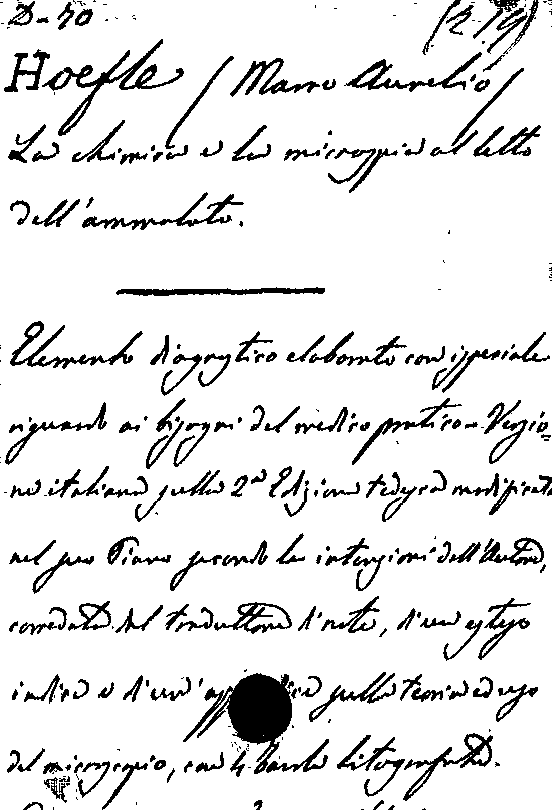 D-70 (R 19)
Hoefle (Marco Aurelio)
La chimica e la microspia al letto
dell'ammalato.
Elemento diagnostico elaborato con ispeciale
riguardo ai bisogni del medico pratico. Versio=
ne italiana sulla 2ª Edizione tedesca modificata
nel suo Piano secondo le intenzioni dell'Autore,
corredata dal traduttore di note, d'un esteso
indice e d'un' sulla teoria ed uso
del microscopio, con 4 Tavole litografate.